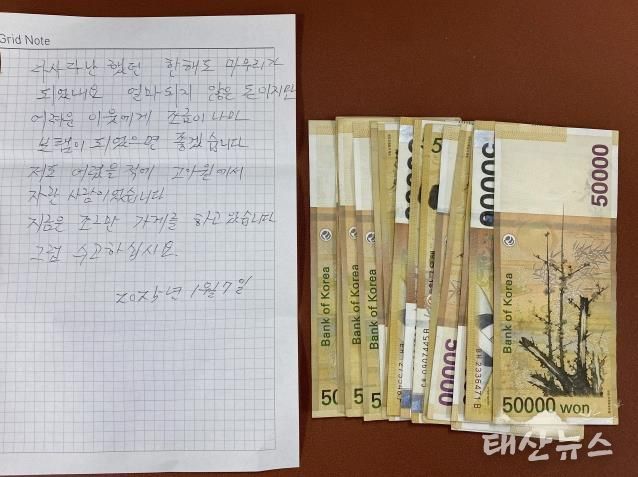 Grid Note
다사다난 했던 한해도 마무리가
되었내요 얼마되지 않은 돈이지만
어려운 이웃에게 조금이나마
보탬이 되었으면 좋겠습니다
저도 어렸을적에 고아원에서
자란 사람이었습니다
지금은 조그만 가게를 하고 있습니다
그럼 수고하십시요.
2025년 1월 7일
50000
Bank of Korea
50000 won
Bank of Korea
Bank of Korea
Bank of Korea
50
50
50
50000
50000
태산뉴스